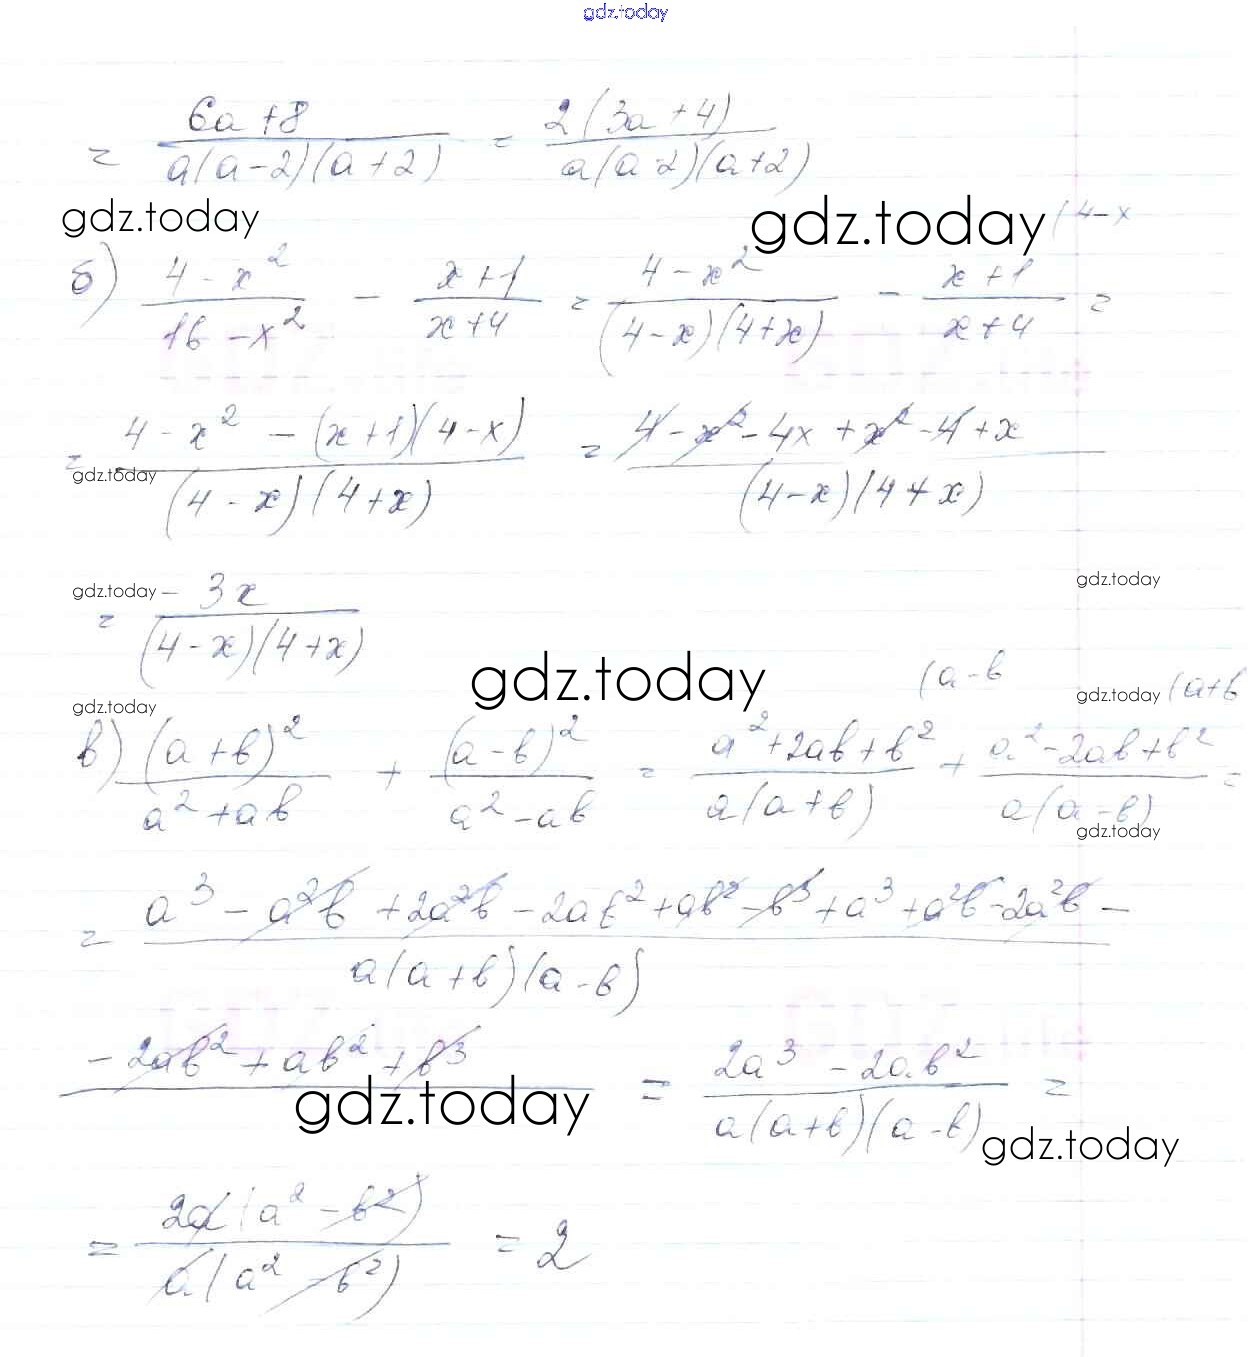 gdz.today
= (6a+8)/(a(a-2)(a+2)) = (2(3a+4))/(a(a-2)(a+2))
gdz.today gdz.today (4-x
б) (4-x²)/(16-x²) - (x+1)/(x+4) = (4-x²)/((4-x)(4+x)) - (x+1)/(x+4) =
= (4-x²-(x+1)(4-x))/((4-x)(4+x)) = (4-x²-4x+x²-4+x)/((4-x)(4+x))
gdz.today
gdz.today gdz.today
= (-3x)/((4-x)(4+x))
gdz.today (a-b gdz.today (a+b
gdz.today
в) (a+b)²/(a²+ab) + (a-b)²/(a²-ab) = (a²+2ab+b²)/(a(a+b)) + (a²-2ab+b²)/(a(a-b)) =
gdz.today
= (a³-a²b+2a²b-2ab²+ab²-b³+a³+a²b-2a²b-)/(a(a+b)(a-b))
-2ab²+ab²+b³ = (2a³-2ab²)/(a(a+b)(a-b)) =
gdz.today gdz.today
= (2a(a²-b²))/(a(a²-b²)) = 2